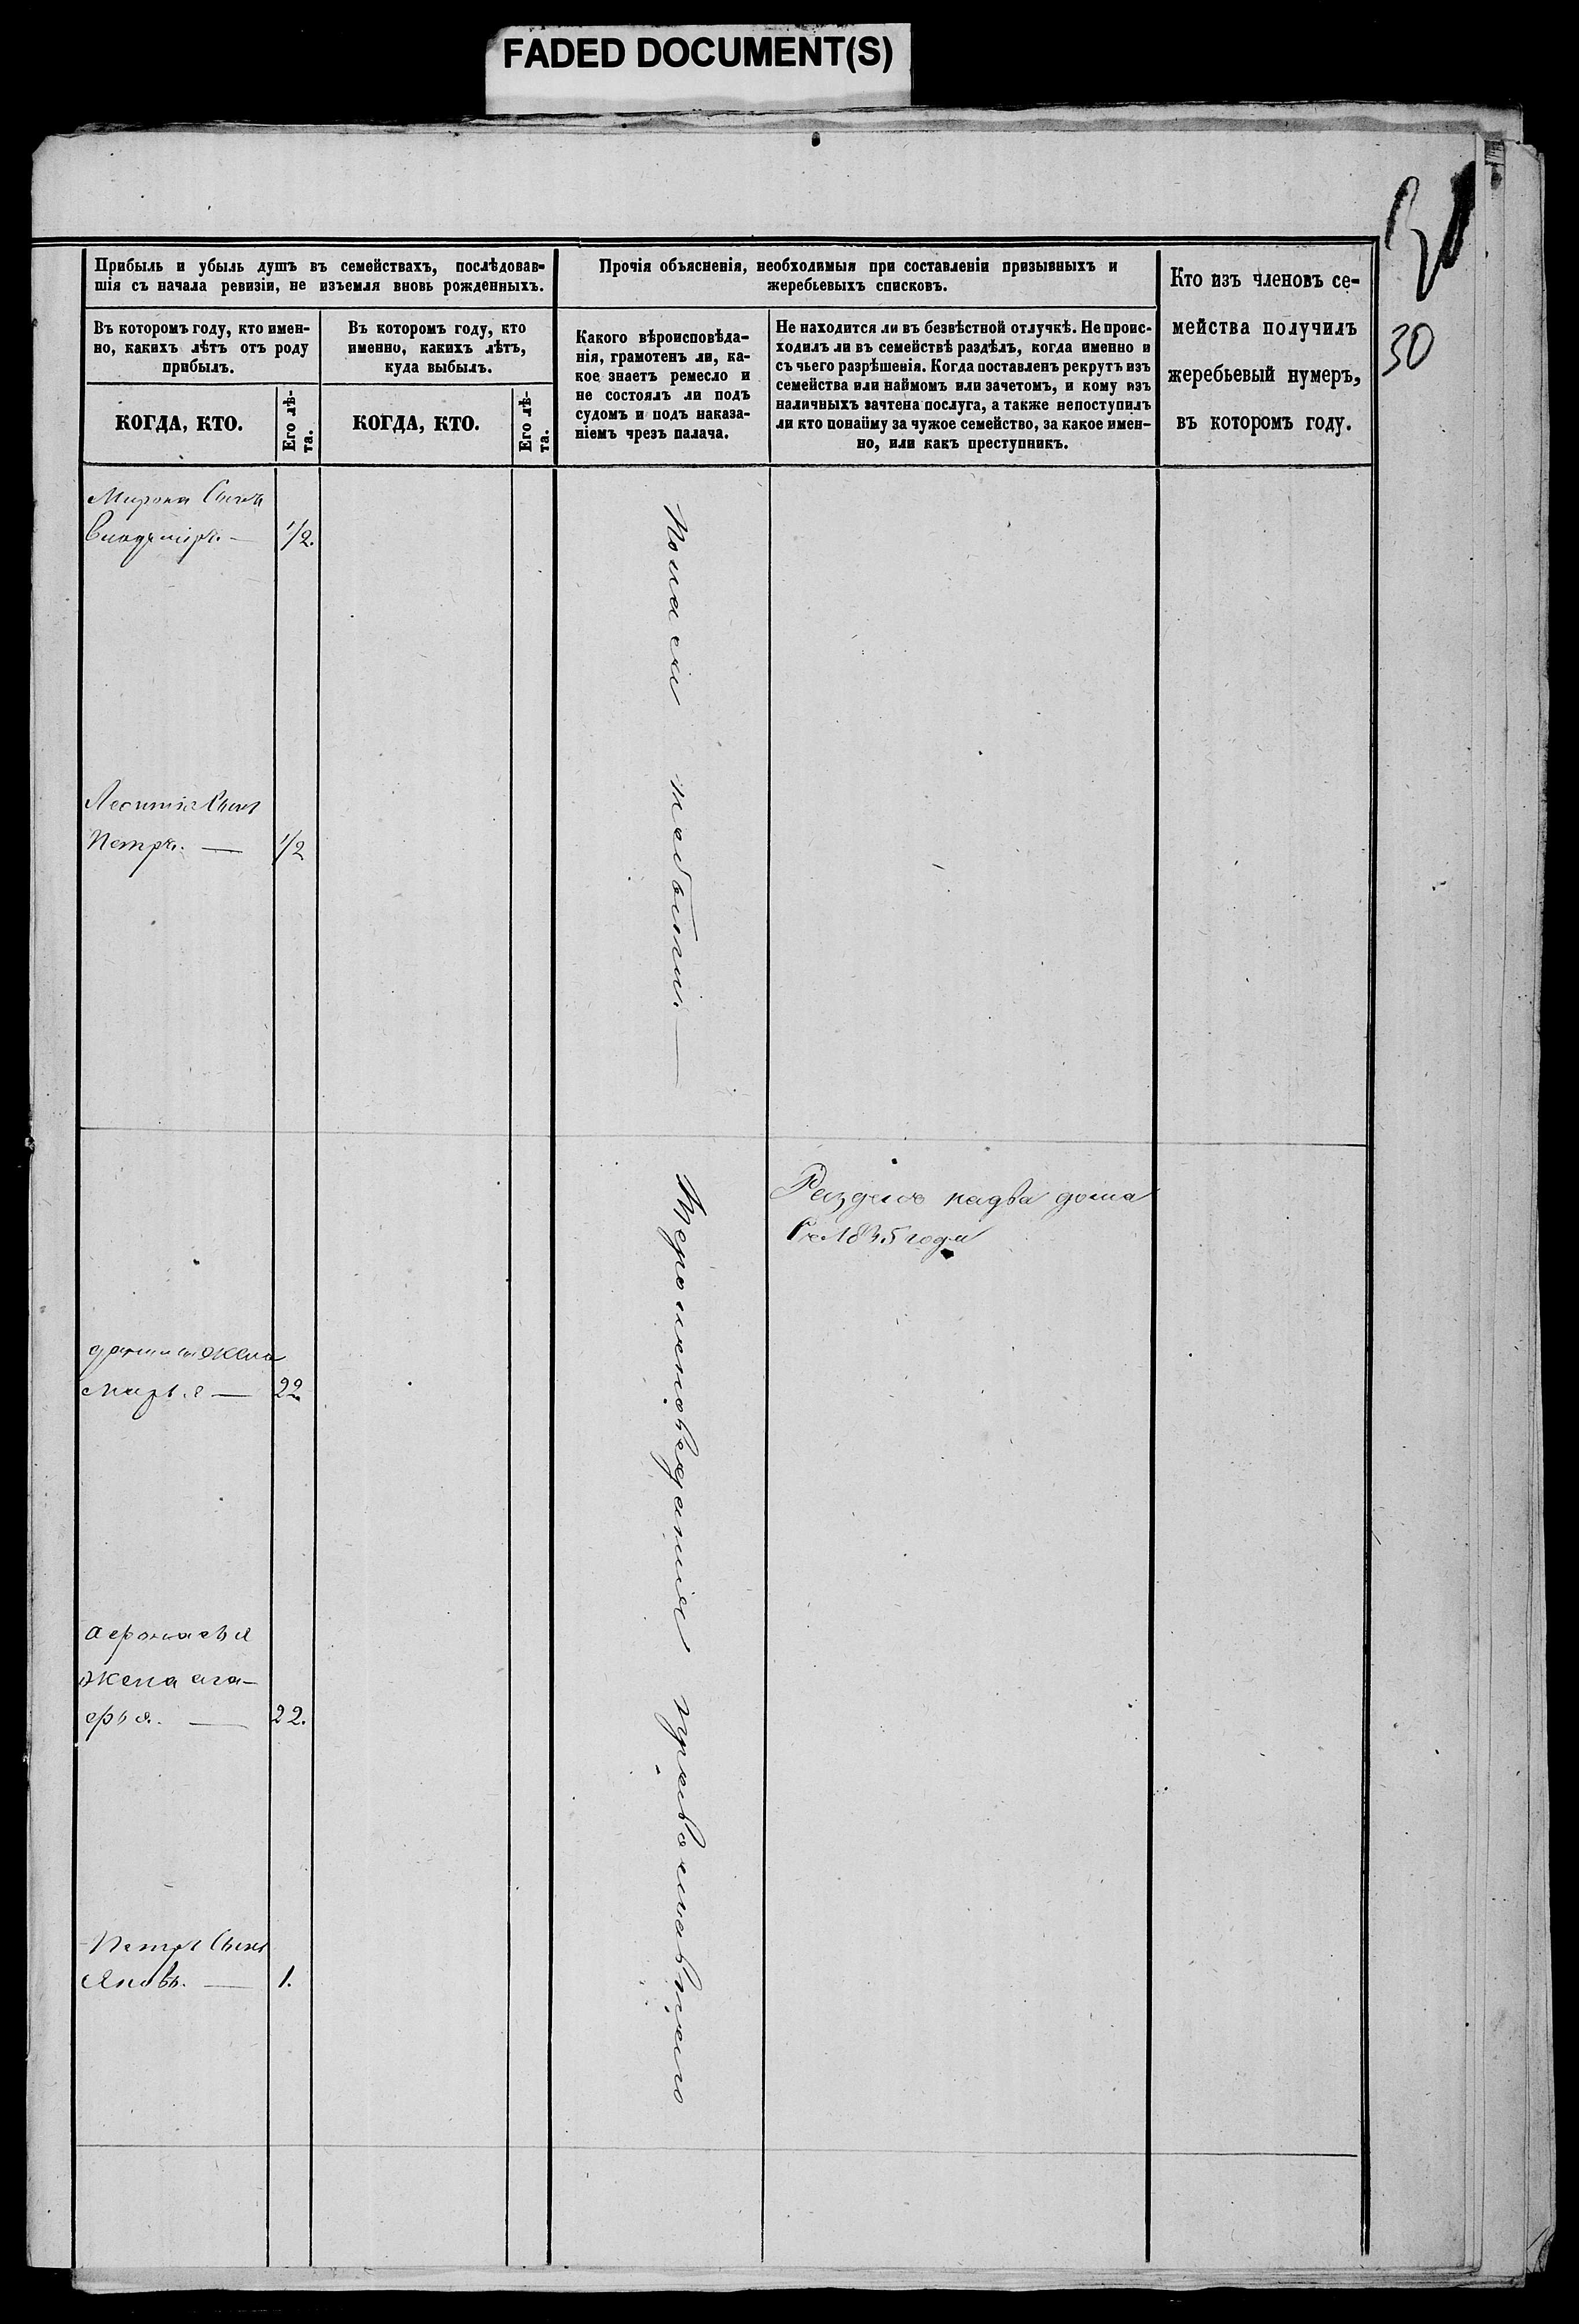 FADED DOCUMENT(S)
30
Прибыль и убыль душъ въ семействахъ, послѣдовав-
шія съ начала ревизіи, не изъемля вновь рожденныхъ.
Въ которомъ году, кто имен-
но, какихъ лѣтъ отъ роду
прибылъ.
Въ которомъ году, кто
именно, какихъ лѣтъ,
куда выбылъ.
КОГДА, КТО.
Его лѣ-
та.
КОГДА, КТО.
Его лѣ-
та.
Прочія объясненія, необходимыя при составленіи призывныхъ и
жеребьевыхъ списковъ.
Какого вѣроисповѣда-
нія, грамотенъ ли, ка-
кое знаетъ ремесло и
не состоялъ ли подъ
судомъ и подъ наказа-
ніемъ чрезъ палача.
Не находится ли въ безвѣстной отлучкѣ. Не проис-
ходилъ ли въ семействѣ раздѣлъ, когда именно и
съ чьего разрѣшенія. Когда поставленъ рекрутъ изъ
семейства или наймомъ или зачетомъ, и кому изъ
наличныхъ зачтена послуга, а также непоступилъ
ли кто понайму за чужое семейство, за какое имен-
но, или какъ преступникъ.
Кто изъ членовъ се-
мейства получилъ
жеребьевый нумеръ,
въ которомъ году.
Мирона Сынъ
Владиміръ. — 1/2.
Леонтія Сынъ
Петръ. — 1/2
жена
Марья — 22
Афонасья
жена ага-
фья. — 22.
Петра Сынъ
Яковъ. — 1.
Вероисповедания православнаго
Разделъ надва дома
года